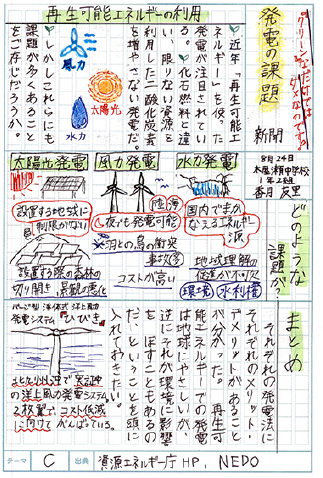 再生可能エネルギーの利用
「クリーン」だけではダメなのです。
発電の課題
新聞
8月24日
1年2組
香月 友里
近年、「再生可能エ
ネルギー」を使った
発電が注目されてい
る。化石燃料と違
い、限りない資源を
利用した二酸化炭素
を増やさない発電だ。
しかしこれらにも
課題が多くあること
をご存じだろうか。
風力
太陽光
水力
どのような課題が?
太陽光発電
設置する地域に
制限がない
設置する際の森林の
切り開き
風力発電
陸 海
夜でも発電可能
羽との鳥の衝突
コストが高い
水力発電
国内でまか
なえるエネルギー
源
地域理解の
促進が不可欠
環境 水利権
まとめ
それぞれの発電法に
それぞれのメリット、
デメリットがあること
が分かった。再生可
能エネルギーでの発電
は地球にやさしいが、
逆にそれが環境に影響
をおよぼすこともあるの
だ、ということを頭に
入れておきたい。
バージ型浮体式洋上風力
発電システム『ひびき』
北九州沖で実証中
の洋上風力発電システム。
2枚翼で、コスト低減
に向けてがんばっている。
テーマ C 出典 資源エネルギー庁HP, NEDO